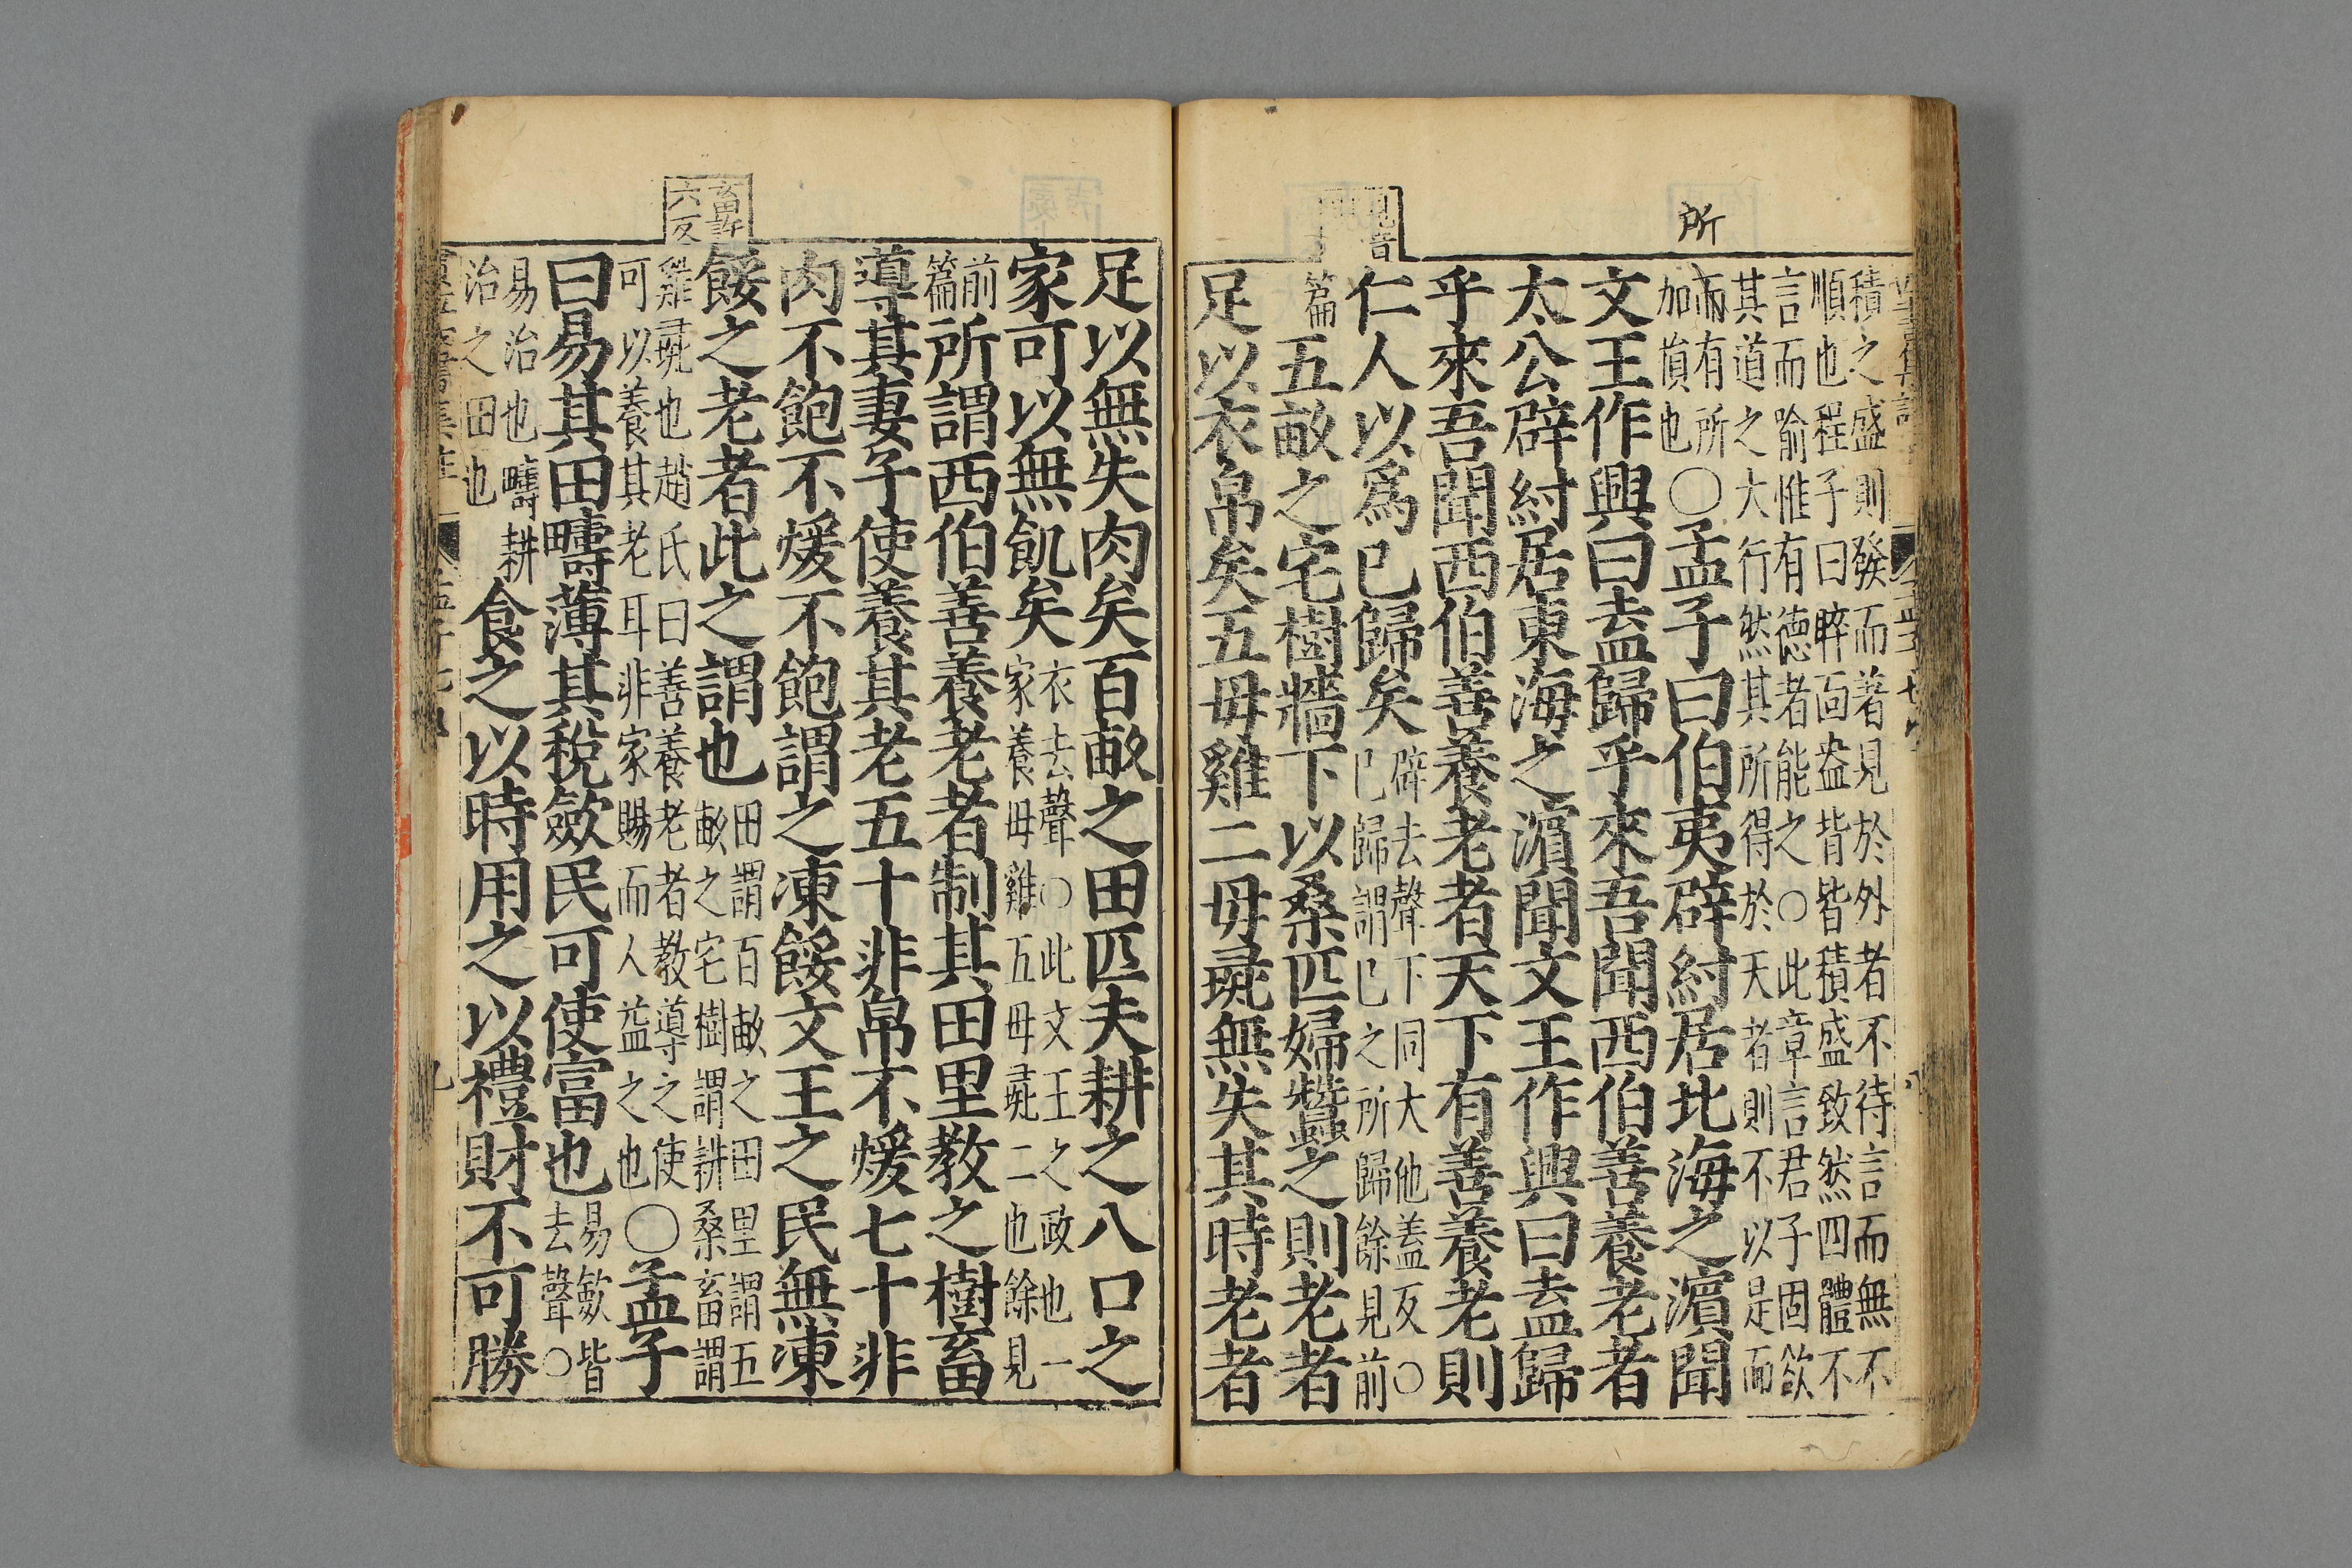 所
積之盛則發而著見於外者不待言而無不
順也程子曰睟面盎背皆積盛致然四體不
言而喻惟有德者能之○此章言君子固欲
其道之大行然其所得於天者則不以是而
而有所
加損也
○孟子曰伯夷辟紂居北海之濱聞
文王作興曰盍歸乎來吾聞西伯善養老者
太公辟紂居東海之濱聞文王作興曰盍歸
乎來吾聞西伯善養老者天下有善養老則
仁人以爲己歸矣
辟去聲下同大他蓋反○
己歸謂己之所歸餘見前
篇
五畝之宅樹牆下以桑匹婦蠶之則老者
足以衣帛矣五母雞二母彘無失其時老者
足以無失肉矣百畝之田匹夫耕之八口之
家可以無飢矣
衣去聲○此文王之政也一
家養母雞五母彘二也餘見
前
篇
所謂西伯善養老者制其田里教之樹畜
導其妻子使養其老五十非帛不煖七十非
肉不飽不煖不飽謂之凍餒文王之民無凍
餒之老者此之謂也
田謂百畝之田里謂五
畝之宅樹謂耕桑畜謂
雞彘也趙氏曰善養老者教導之使
可以養其老耳非家賜而人益之也
○孟子
曰易其田疇薄其稅斂民可使富也
易斂皆
去聲○
易治也疇耕
治之田也
食之以時用之以禮財不可勝
畜許
六反